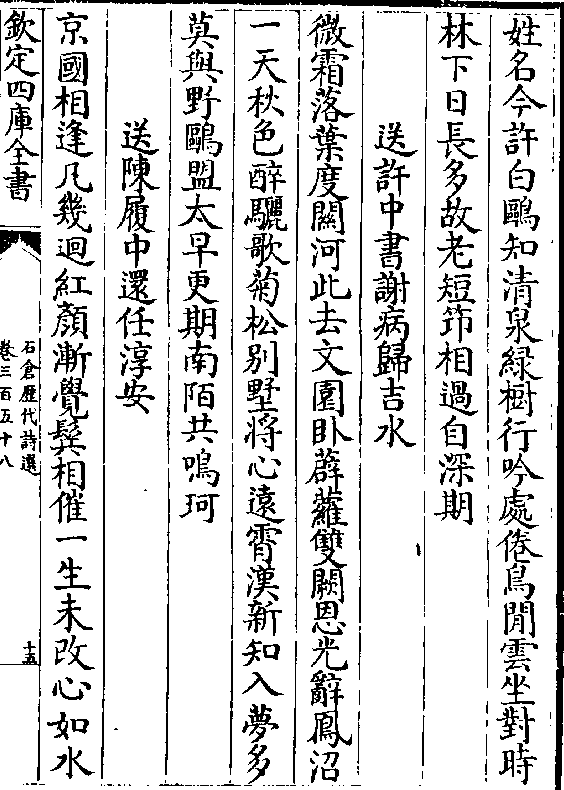 姓名今許白鷗知清泉緑樹行吟處倦鳥閒雲坐對時
林下日長多故老短笻相過自深期
送許中書謝病歸吉水
微霜落葉度關河此去文園卧薜蘿雙闕恩光辭鳳沼
一天秋色醉驪歌菊松别墅將心遠霄漢新知入夢多
莫與野鷗盟太早更期南陌共鳴珂
送陳履中還任淳安
京國相逢凡幾迴紅顔漸覺鬂相催一生未改心如水
欽定四庫全書
石倉歷代詩選
卷三百五十八
十五